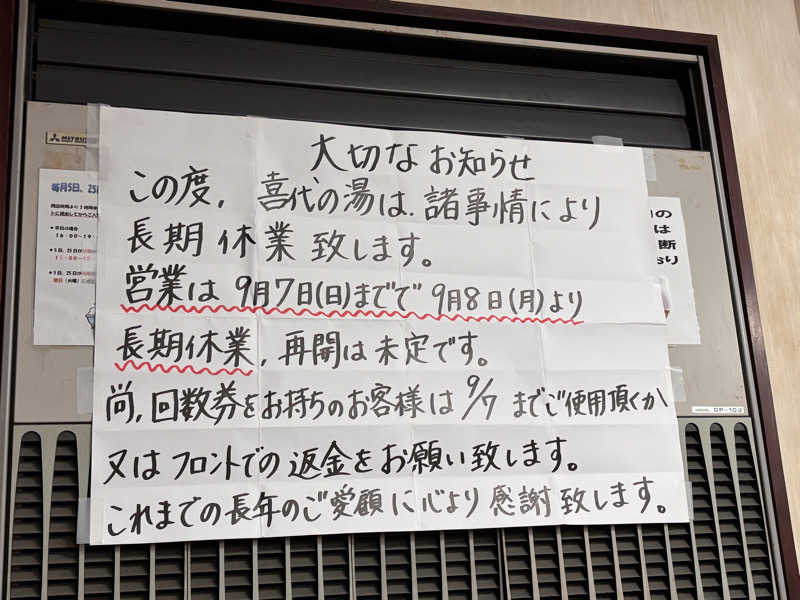 大切なお知らせ
この度、喜代の湯は、諸事情により
長期休業致します。
営業は9月7日(日)までで9月8日(月)より
長期休業、再開は未定です。
尚、回数券をお持ちのお客様は9/7までご使用頂くか
又はフロントでの返金をお願い致します。
これまでの長年のご愛顧に心より感謝致します。
毎月5日、25日
16:00~19:
GP-10J
の
は
断
り